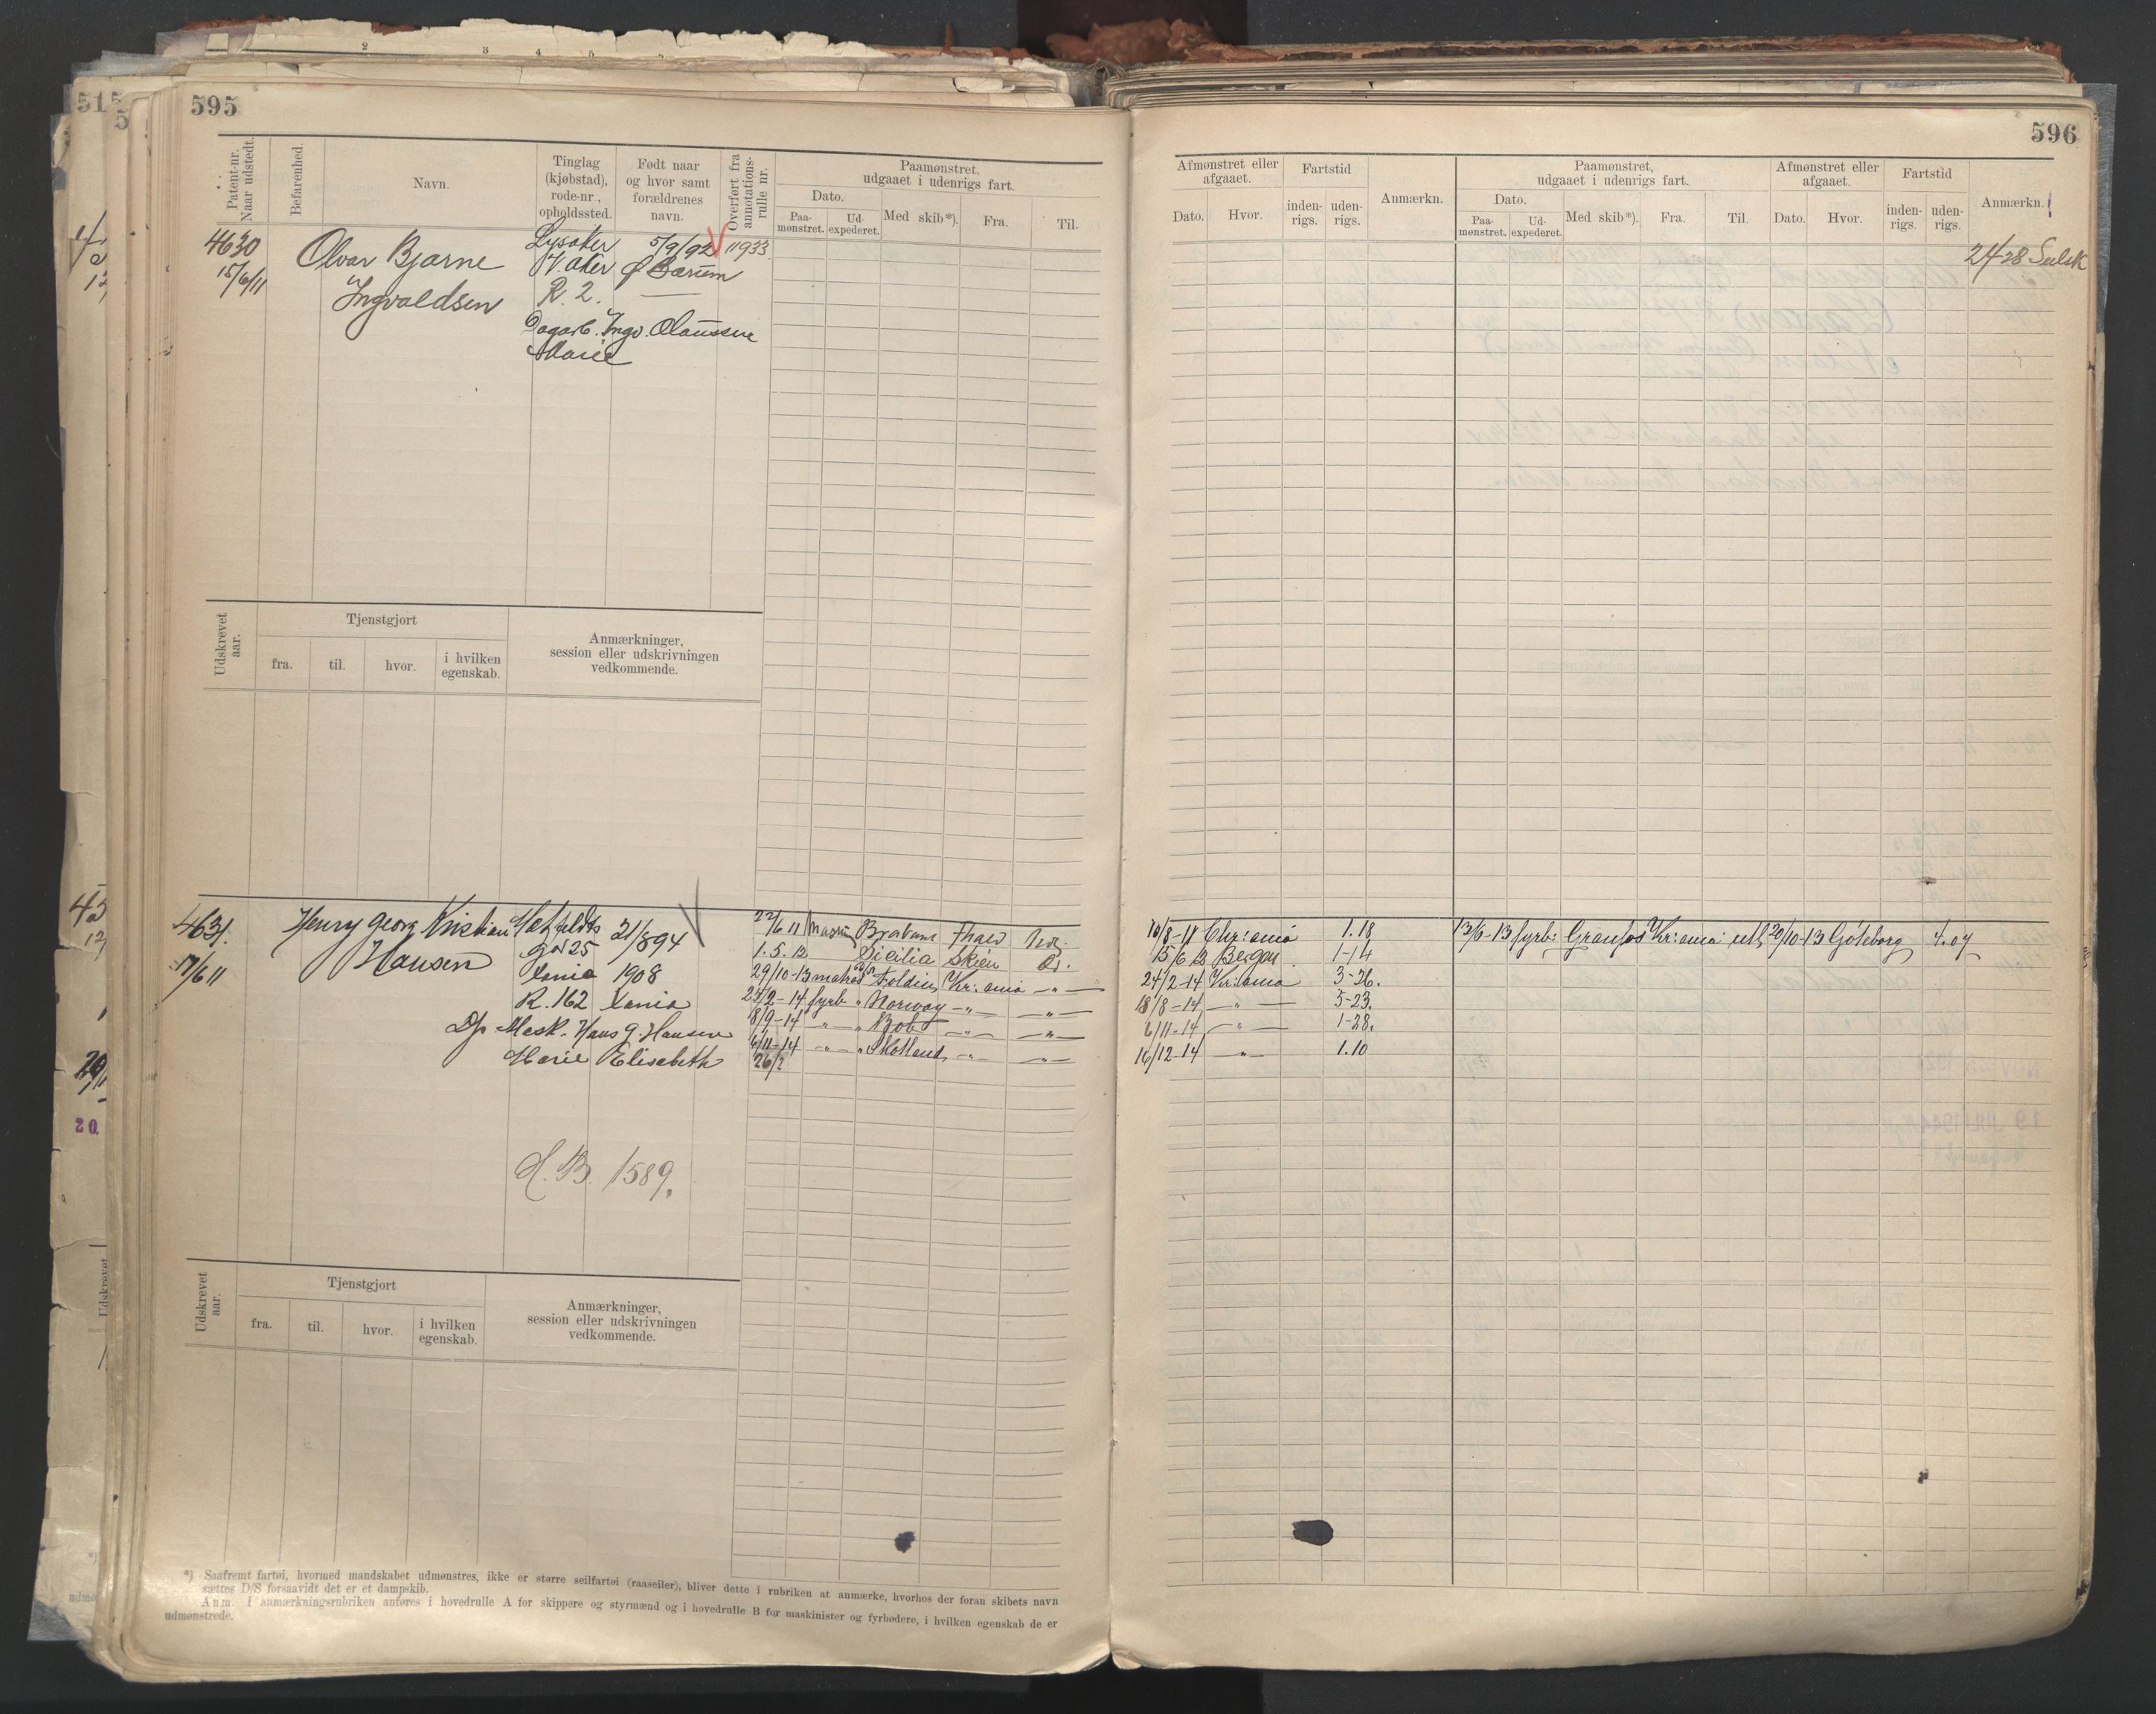 595
Patent-nr.
Naar udstedt.
Befarenhed.
Navn.
Tinglag
(kjøbstad),
rode-nr.,
opholdssted.
Født naar
og hvor samt
forældrenes
navn.
Overført fra
annotations-
rulle nr.
Paamønstret.
udgaaet i udenrigs fart.
Dato.
Paa-
mønstret.
Ud-
expederet.
Med skib*).
Fra.
Til.
4630
15/6/11
Olvar Bjarne
Ingvaldsen
Lysaker
V. Aker
R. 2.
5/9/92
Bærum
11933
Dagarb. Ingv. Olaussen
Marie
Udskrevet
aar.
Tjenstgjort
fra.
til.
hvor.
i hvilken
egenskab.
Anmærkninger,
session eller udskrivningen
vedkommende.
4631.
17/6 11
Henry Georg Kristian
Hansen
gd 25
21/8 94
Xania 1908
R. 162 Xania
Mask. Hans G. Hansen
Marie Elisabeth
H.B. 1589.
22/6 11 Brabant
1.5.12 Sicilia Skien
29/10-13 Foldin, Kr:ania -"-
24/2-14 fyrb " Norway -"- -"-
8/9-14 -"- " Bob -"- -"-
6/11-14 -"- " Skotland, -"- -"-
26/2
Udskrevet
aar.
Tjenstgjort
fra.
til.
hvor.
i hvilken
egenskab.
Anmærkninger,
session eller udskrivningen
vedkommende.
*) Saafremt fartøi, hvormed mandskabet udmønstres, ikke er større seilfartøi (raaseiler), bliver dette i rubriken at anmærke, hvorhos der foran skibets navn
sættes D/S forsaavidt det er et dampskib.
Anm. I anmærkningsrubriken anføres i hovedrulle A for skippere og styrmænd og i hovedrulle B for maskinister og fyrbødere, i hvilken egenskab de er
udmønstrede.
596
Afmønstret eller
afgaaet.
Dato.
Hvor.
Fartstid
inden-
rigs.
uden-
rigs.
Anmærkn.
Paamønstret,
udgaaet i udenrigs fart.
Dato.
Paa-
mønstret.
Ud-
expederet.
Med skib*).
Fra.
Til.
Afmønstret eller
afgaaet.
Dato.
Hvor.
Fartstid
inden-
rigs.
uden-
rigs.
Anmærkn.
10/8-11 Chr:ania 1.18
15/6 13 Bergen 1-14
24/2-14 Kr:ania 3-26.
18/8-14 -"- 5-23.
6/11-14 -"- 1-28.
16/12-14 -"- 1.10
13/6-13 fyrb: Granfos Kr:ania utl, 20/10-13 Göteborg 4.07